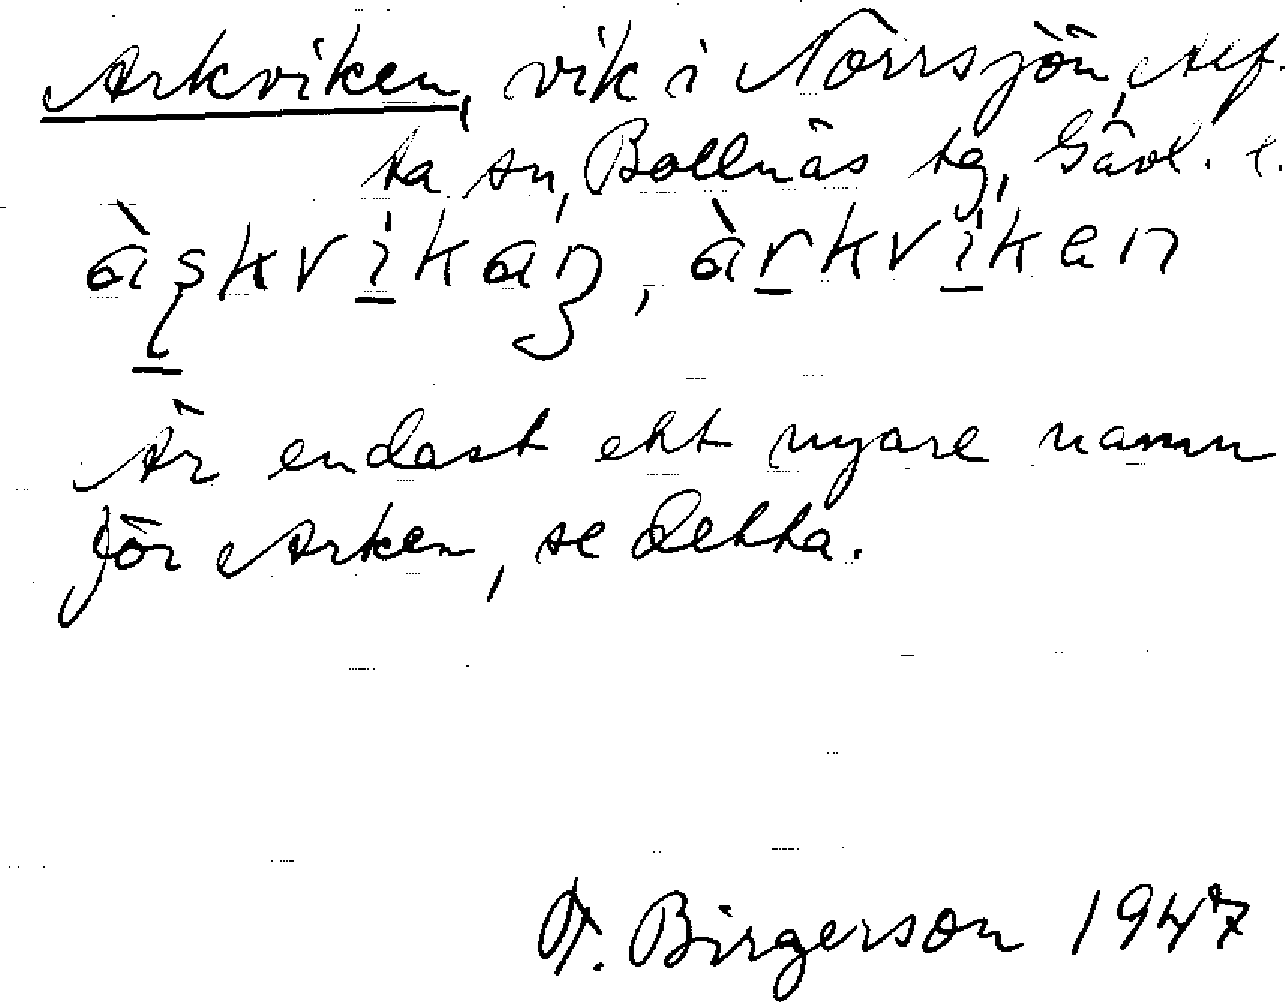 Arkviken, vik i Norrsjön, Alf-
ta sn, Bollnäs tg, Gävl. l.
àşkvikaŋ, àrkviken
Är endast ett nyare namn
för Arken, se detta.
F. Birgerson 1947